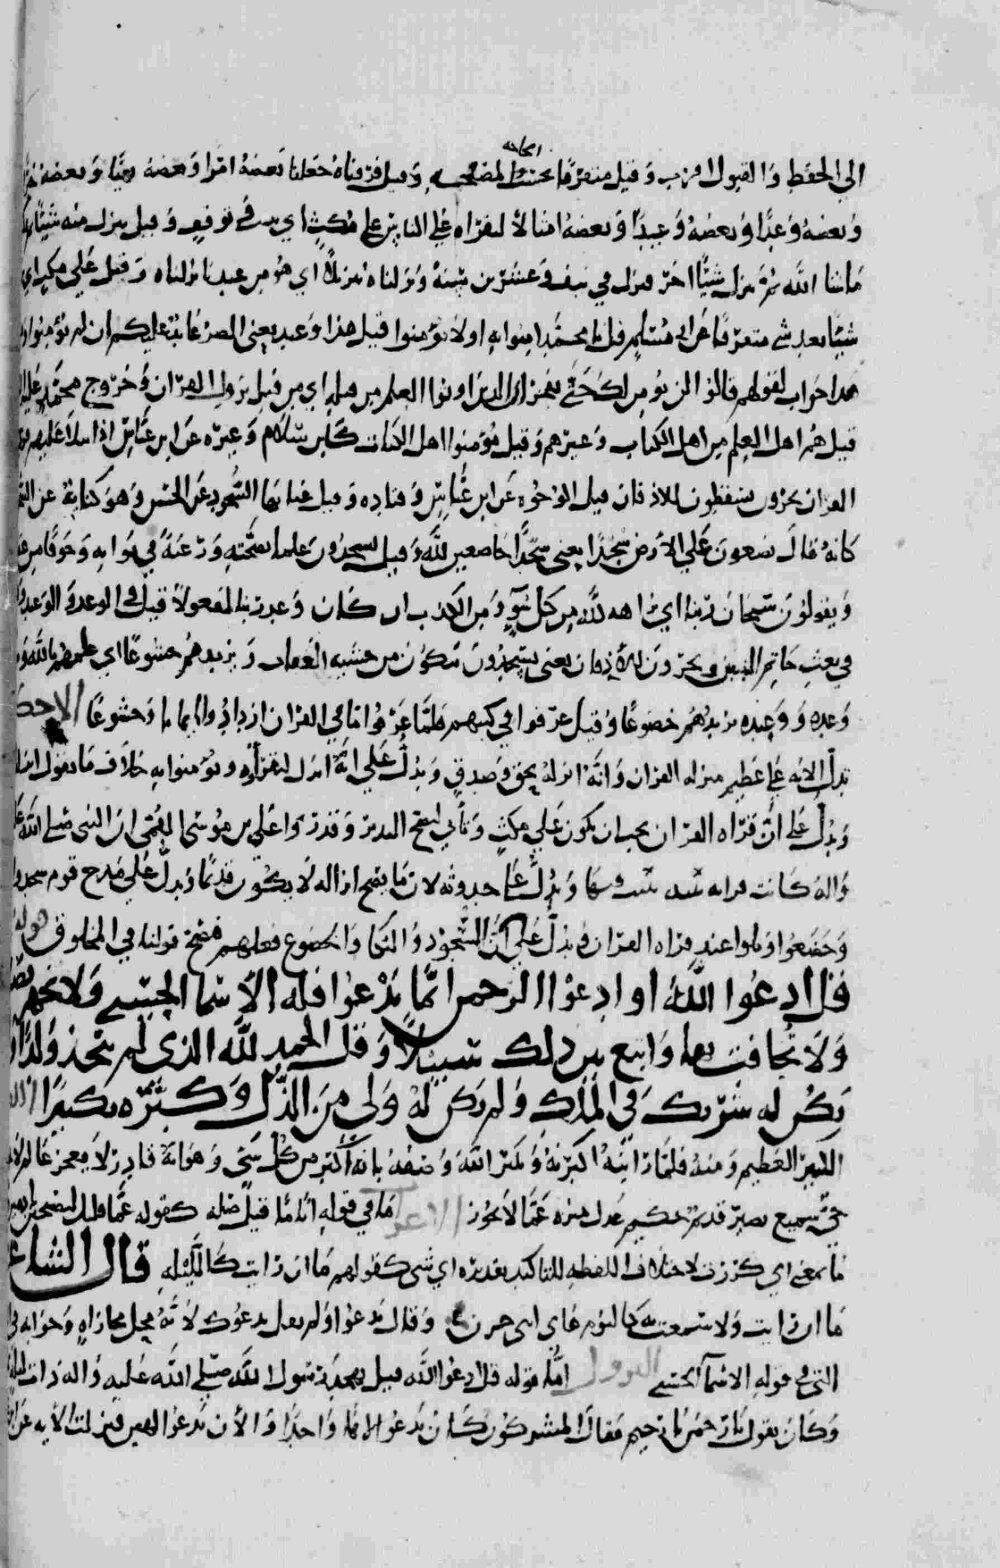 الحاجة
الى الحفظ والقبول اقرب وقيل متفرقا بحسب المصلحة وقيل فرقناه جعلنا بعضه امرا وبعضه نهيا وبعضه
وبعضه وعدا وبعضه وعيدا وبعضه امثالا لتقراه على الناس على مكث اي في توقف وقيل ينزل منه شيئا
ما شا الله ثم ينزل شيئا اخر فنزل في نيف وعشرين سنة ونزلناه تنزيلا اي هو من عندنا نزلناه وقيل على مكث اي
شيئا بعد شي متفرقا عن ابي مسلم قل يا محمد امنوا به او لا تومنوا قيل هذا وعيد يعني الضرر عايد عليكم ان لم تومنوا
هذا جواب لقولهم قالوا لن نومن لك حتى تفجر ان الذين اوتوا العلم من قبله اي من قبل نزول القران وخروج محمد عليه
قيل هم اهل العلم من اهل الكتاب وغيرهم وقيل مومنوا اهل الكتاب كابن سلام وغيره عن ابن عباس اذا يتلا عليهم
القران يخرون يسقطون للاذقان قيل الوجوه عن ابن عباس وقتادة وقيل عنا بها السجود على الجبين وهو كناية عن
كانه قال يقعون على الارض سجدا يعني سجدا خاضعين لله وقيل يسجدون علما بصحته ورغبة في ثوابه وخوفا من
ويقولون سبحان ربنا اي براءة لله من كل سوء ومن الكذب ان كان وعد ربنا لمفعولا قيل في الوعد والوعيد
في بعث خاتم النبيين ويخرون للاذقان يعني يسجدون يبكون من خشية العقاب ويزيدهم خشوعا اي علمهم بالله
وعده ووعيده يزيدهم خضوعا وقيل عرفوا في كتبهم فلما عرفوا ما في القران ازدادوا ايمانا وخشوعا الاحكام
تدل الاية على عظيم منزلة القران وانه انزله بحق وصدق ويدل على انه انزل لنقراه ونومن به خلاف ما يقول
ويدل على ان قراة القران يجب ان يكون على مكث وتأني ليقع التدبر وقد روا علي بن موسى القمي ان النبي صلى الله
واله كانت قراته ويدل على حدوثه لان ما يصح انزاله لا يكون قديما ويدل على مدح قوم سجدوا
وخضعوا وبكوا عند قراة القران ويدل على ان السجود والبكا والخضوع فعلهم فيصح قولنا في المخلوق قوله
قل ادعوا الله او ادعوا الرحمن اياما تدعوا فله الاسما الحسنى ولا تجهر
ولا تخافت بها وابتغ بين ذلك سبيلا وقل الحمد لله الذي لم يتخذ ولدا
يكن له شريك في الملك ولم يكن له ولي من الذل وكبره تكبيرا
الكبير العظيم ومنه فلما راينه اكبرنه وتكبر الله وصفه بانه اكبر من كل شي وهو انه قادر لا يعجز عالم
حي سميع بصير قديم حكيم عدل منزه عما لا يجوز الاعراب ما في قوله اياما قيل صلة كقوله عما قليل ليصبحن
ما بمعنى اي كررت لاختلاف اللفظة للتاكيد تقديره اي شي كقولهم ما ان رايت كالليلة قال الشاعر
ما ان رايت ولا سمعت به كاليوم وقال تدعوا ولم يقل يدعوك لانه محل مجازاة وجوابه
التي في قوله الاسما الحسنى النزول اما قوله قل ادعوا الله قيل تهجد رسول الله صلى الله عليه واله ذات ليلة
وكان يقول يا رحمن يا رحيم فقال المشركون كان يدعو الها واحدا والان يدعوا الهين فنزلت الاية عن ابن